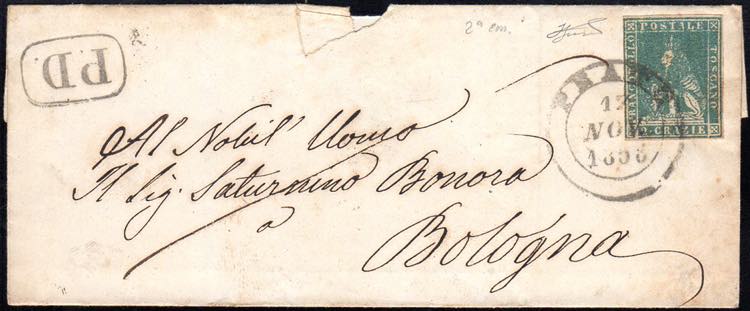 2ª em.
P.D.
FRANCOBOLLO
POSTALE
TOSCANO
CRAZIE
PRATO
13
NOV
1856
Al Nobil' Uomo
Il Sig. Saturnino Bonora
a
Bologna